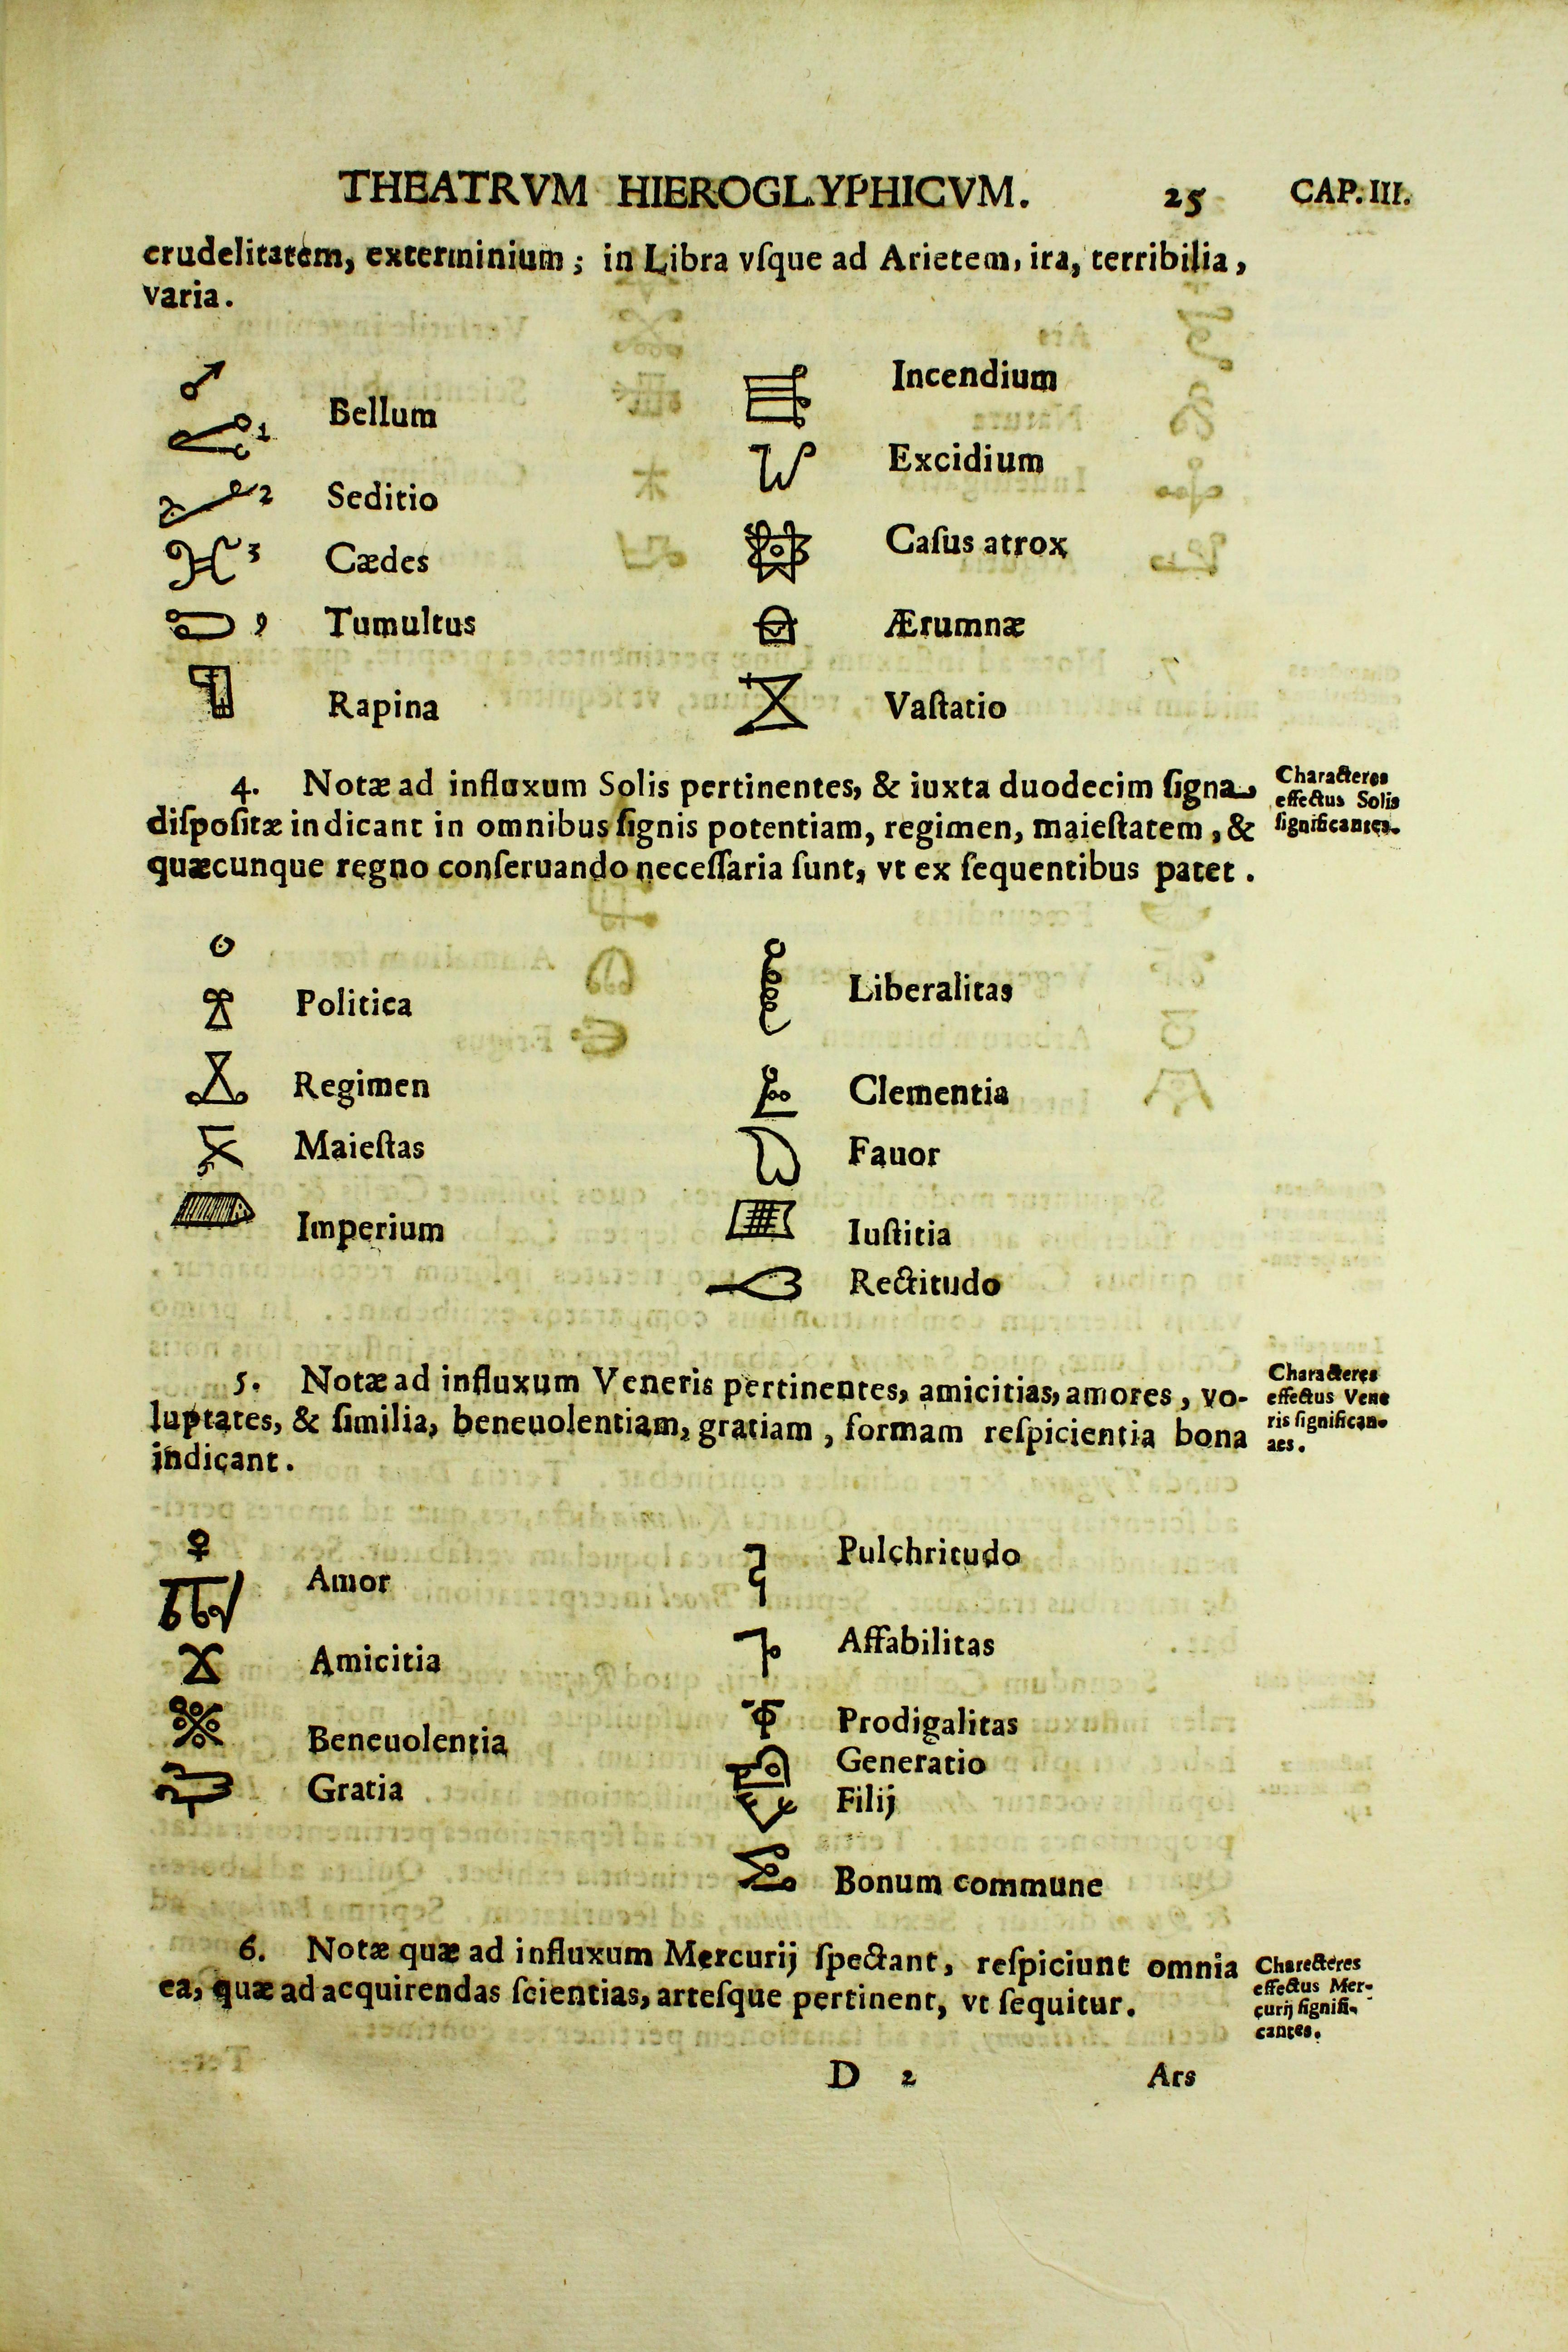 THEATRVM HIEROGLYPHICVM. 25 CAP. III.
crudelitatem, exterminium; in Libra vſque ad Arietem, ira, terribilia,
varia.
♂
Bellum
1
Seditio
2
Cædes
3
Tumultus
9
Rapina
Incendium
Excidium
Caſus atrox
Ærumnæ
Vaſtatio
4. Notæ ad influxum Solis pertinentes, & iuxta duodecim ſigna
diſpoſitæ indicant in omnibus ſignis potentiam, regimen, maieſtatem, &
quæcunque regno conſeruando neceſſaria ſunt, vt ex ſequentibus patet.
Characteres
effectus Solis
ſignificantes.
☉
Politica
Regimen
Maieſtas
Imperium
Liberalitas
Clementia
Fauor
Iuſtitia
Rectitudo
5. Notæ ad influxum Veneris pertinentes, amicitias, amores, vo-
luptates, & ſimilia, beneuolentiam, gratiam, formam reſpicientia bona
indicant.
Characteres
effectus Vene
ris ſignifican-
aes.
♀
Amor
Amicitia
Beneuolentia
Gratia
Pulchritudo
Affabilitas
Prodigalitas
Generatio
Filij
Bonum commune
6. Notæ quæ ad influxum Mercurij ſpectant, reſpiciunt omnia
ea, quæ ad acquirendas ſcientias, arteſque pertinent, vt ſequitur.
Charecteres
effectus Mer-
curij ſignifi-
cantes.
D 2 Ars